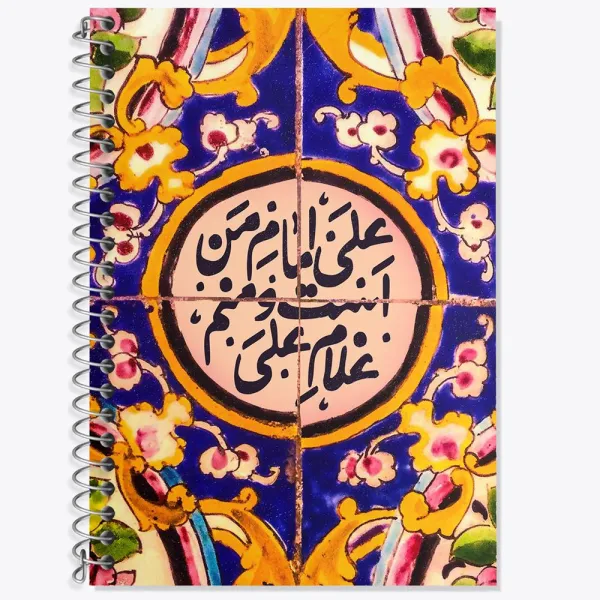 عَلی اِمامِ مَن
اَست و مَنَم
غُلامِ عَلی